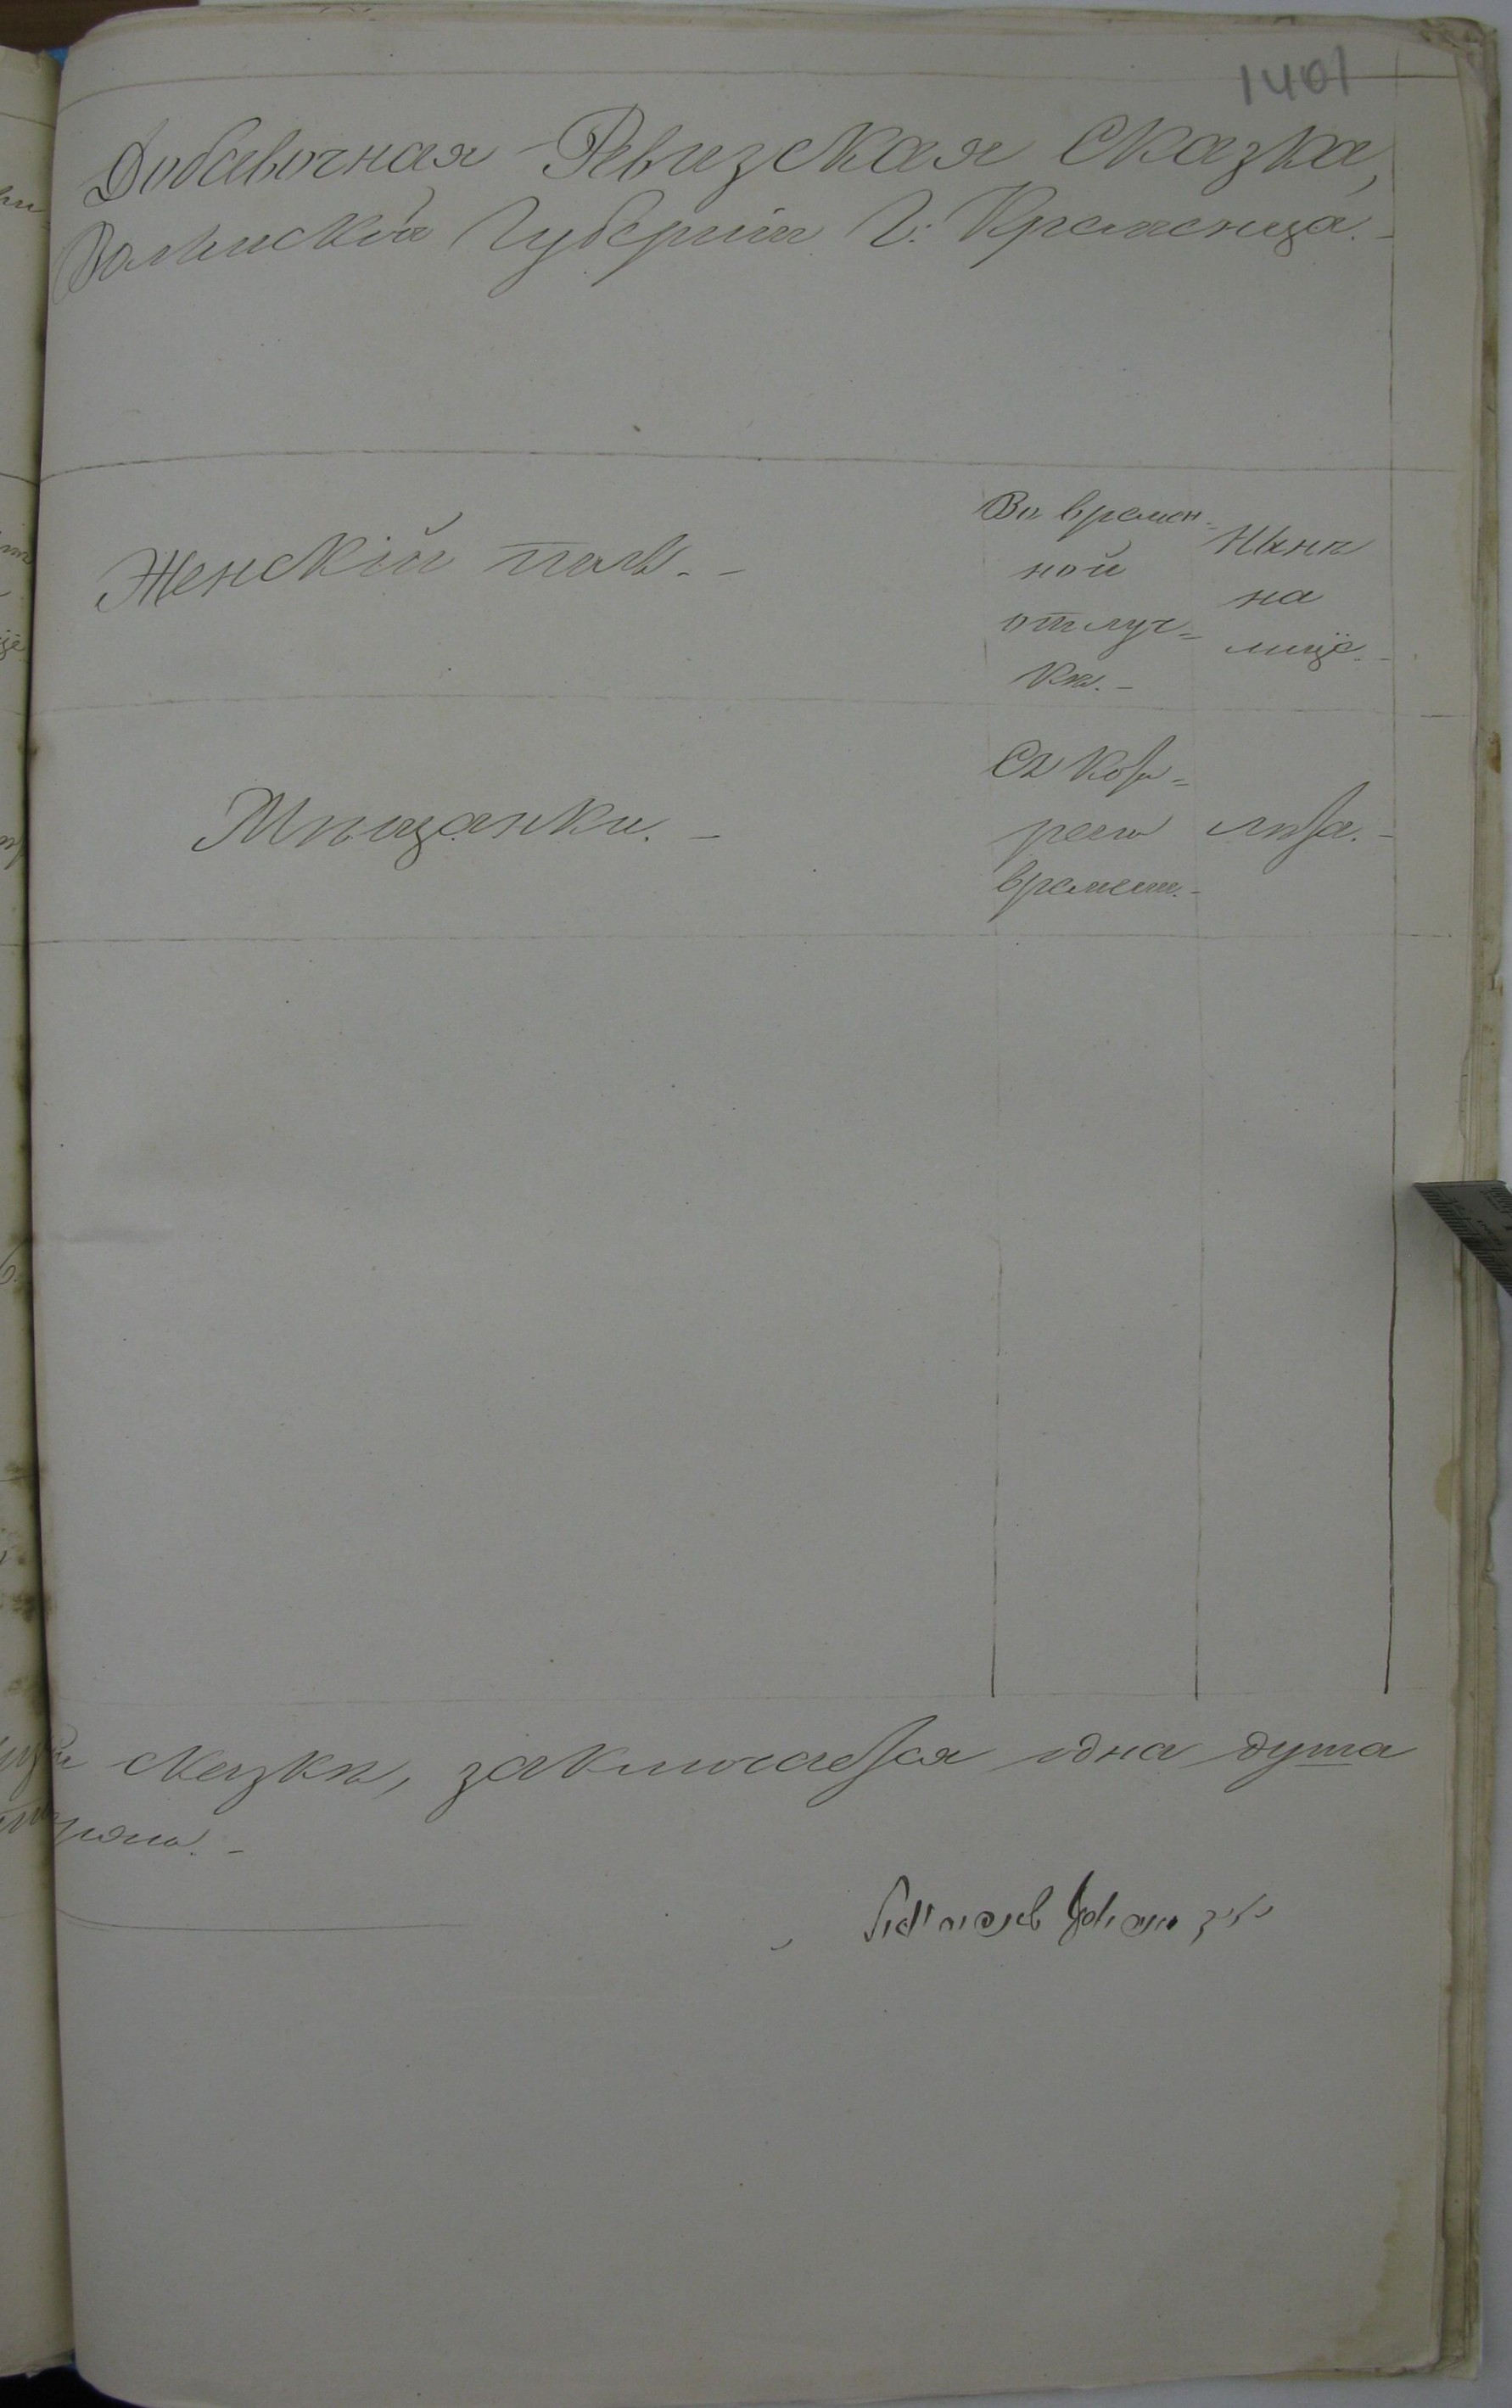 1401
Добавочная Ревизская Сказка,
Волынской Губерніи Г: Кременца.-
Женскій полъ.-
Во времен=
ной
отлуч=
кѣ.-
Нынѣ
на
лицѣ.-
Мѣщанки.-
Съ кото=
раго
времени.-
лѣта.-
сказкѣ, заключается одна душа